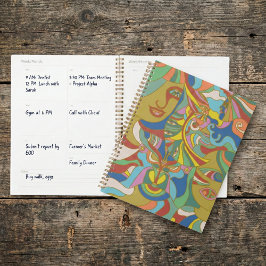 9 AM: Dentist
12 PM: Lunch with
Sarah
3:30 PM: Team Meeting
- Project Alpha
Gym at 6 PM
Call with Client
Submit report by
EOD
Farmer's Market
Family Dinner
Buy milk, eggs